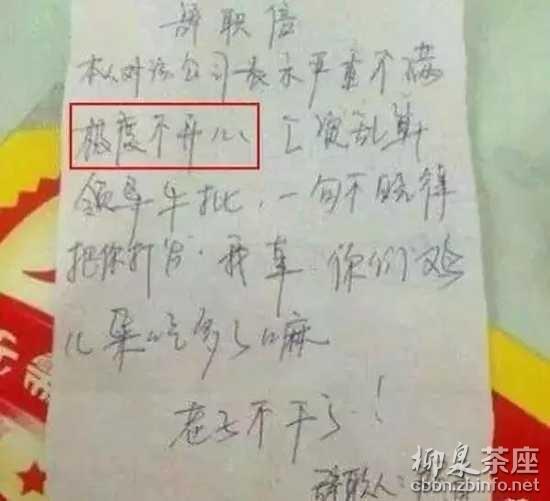 辞职信
本人对该公司表示严重不满
极度不开心 工资乱算
领导牛批，一句不晓得
把你打发．我草 你们鸡
儿果吃多了嘛
老子不干了！
辞职人：
柳泉茶座
cbbn.zbinfo.net